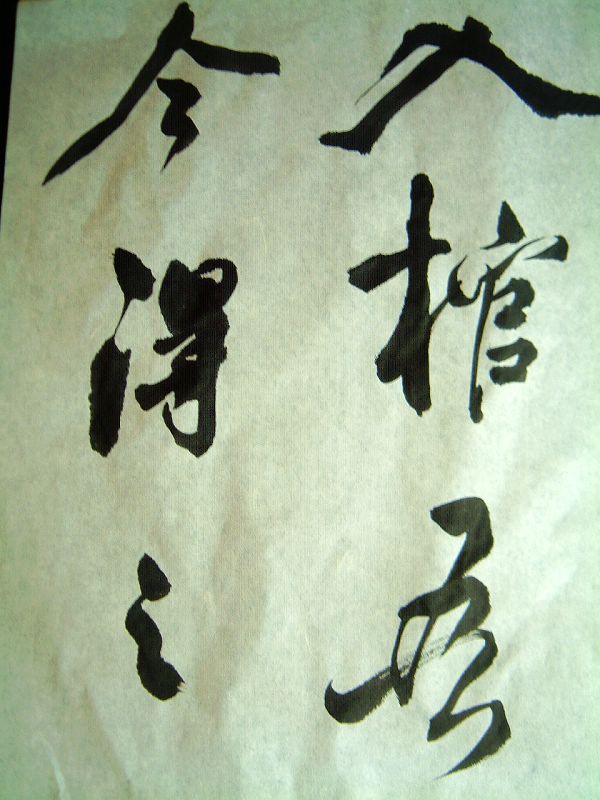 入棺吾
今得之